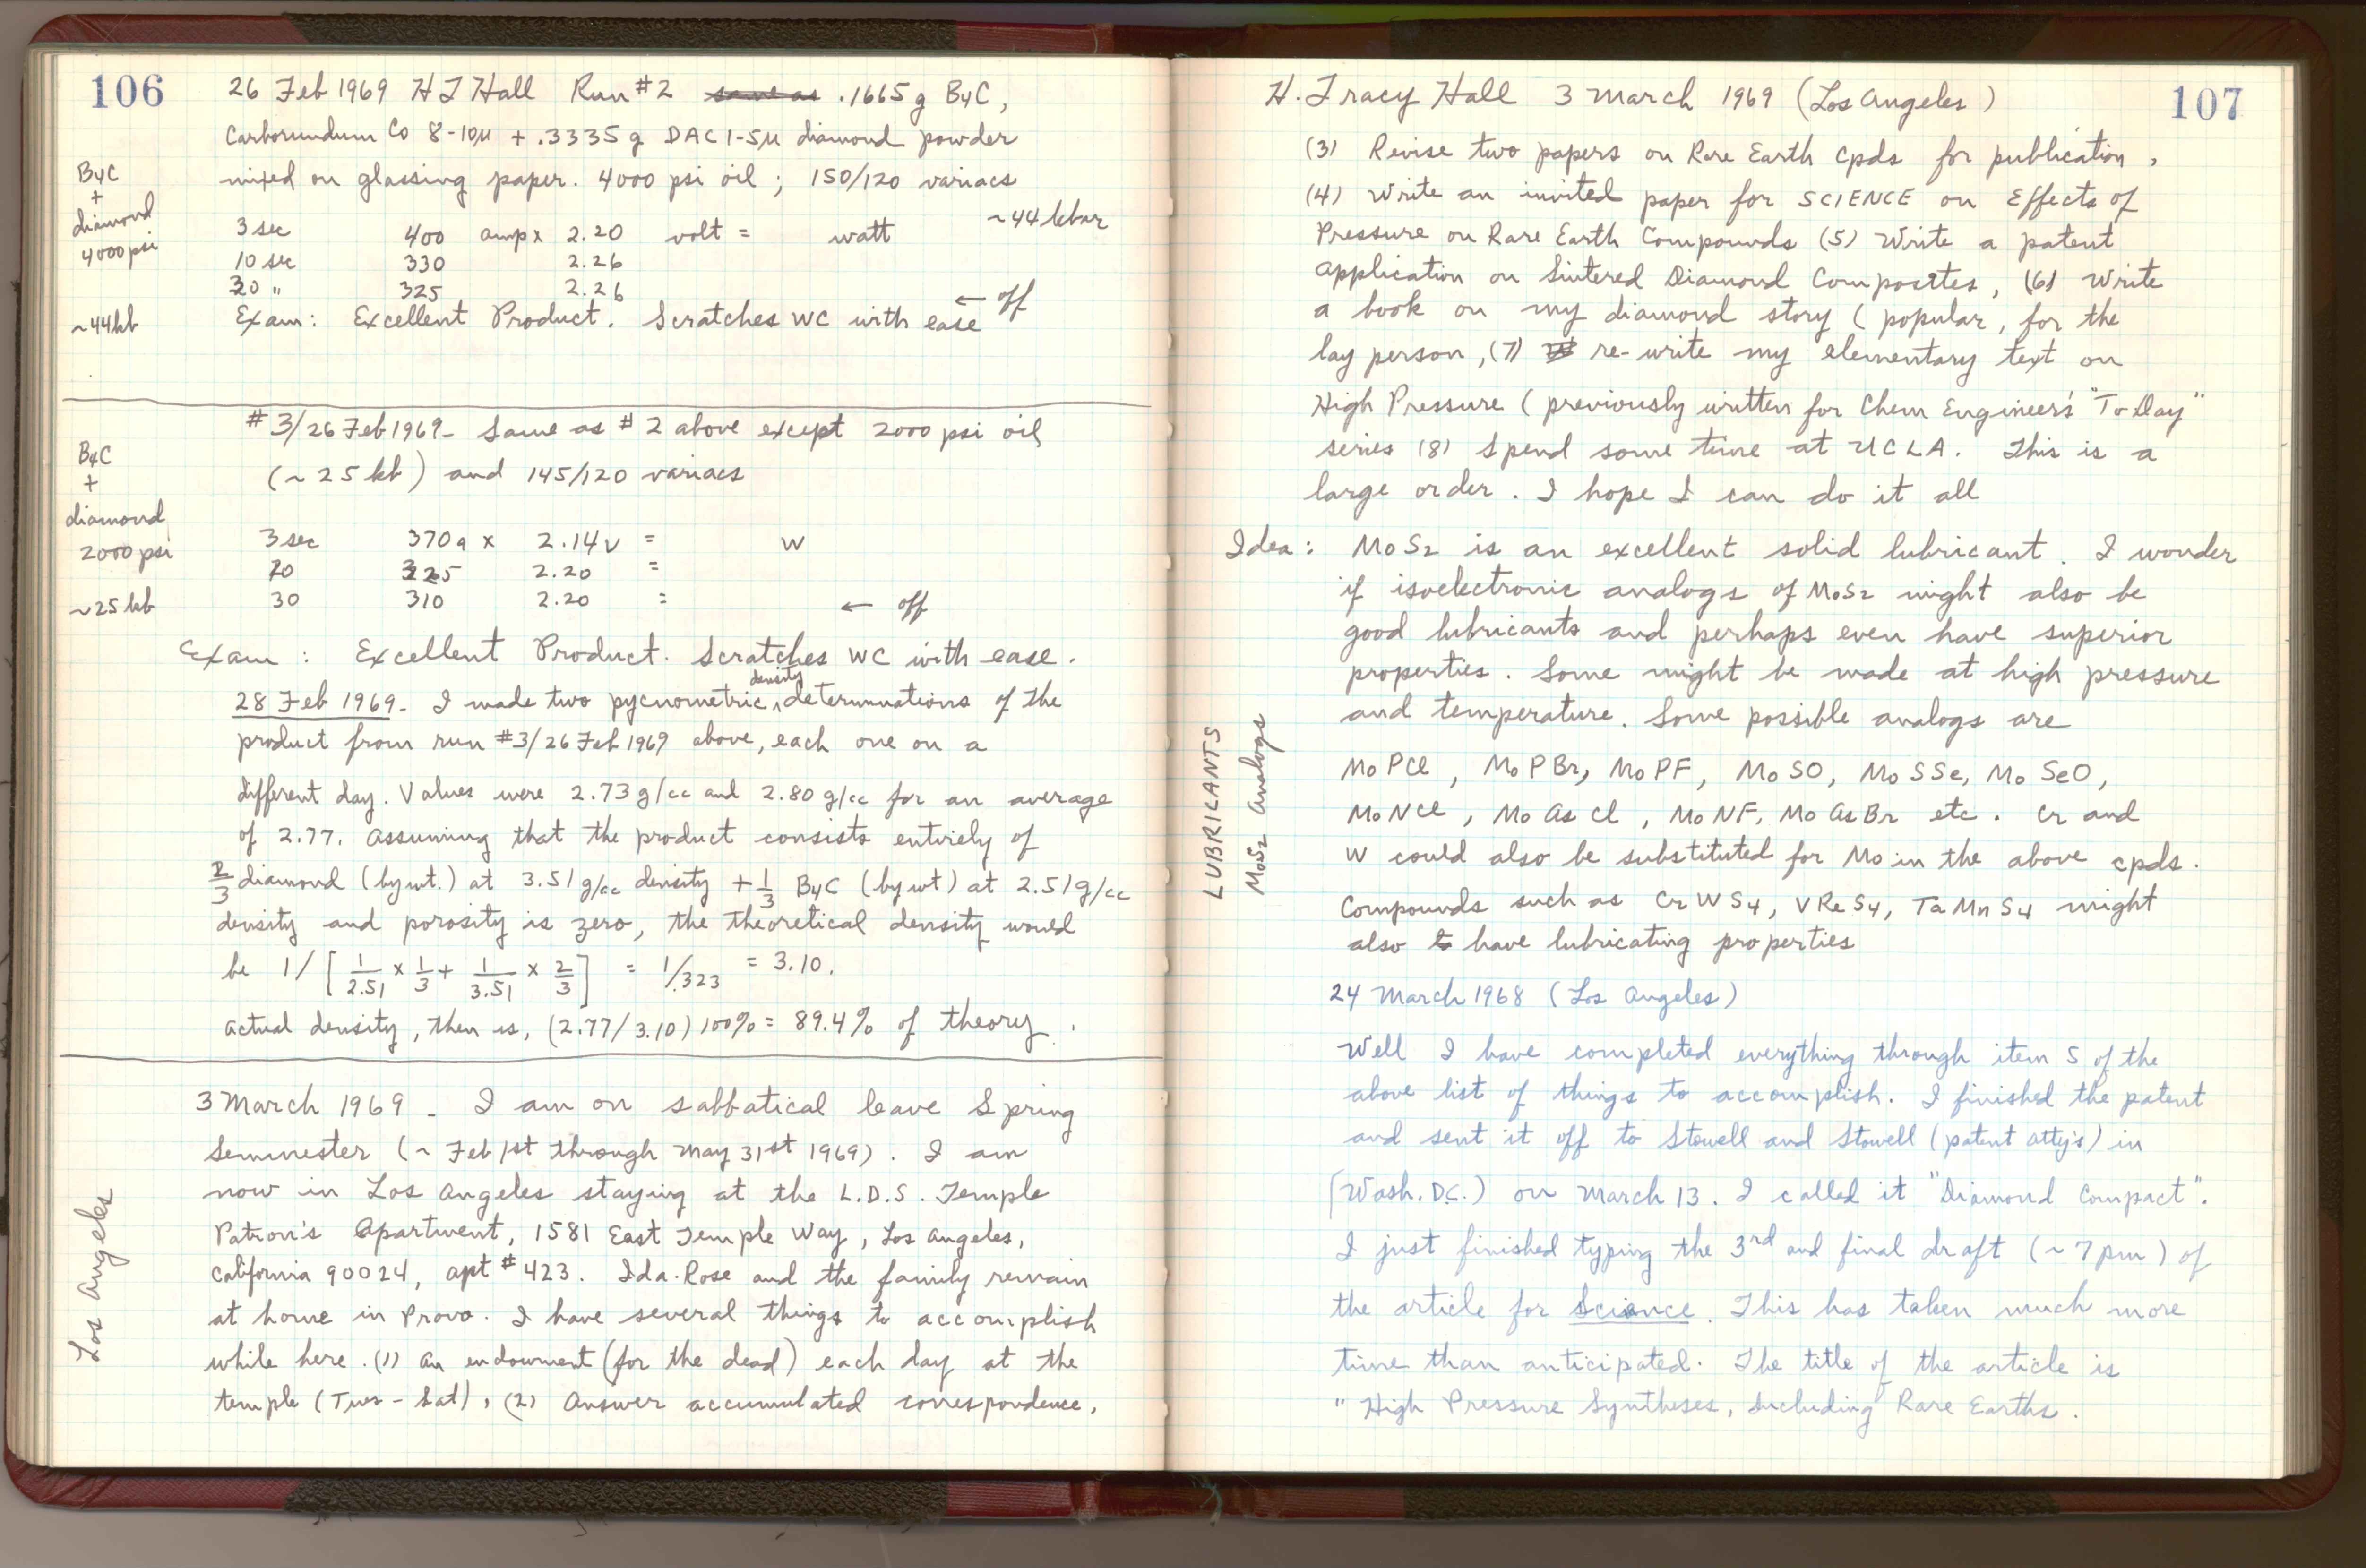 106
26 Feb 1969 H T Hall Run #2 same as .1665 g B4C,
Carborundum Co 8-10μ + .3335 g DAC 1-5μ diamond powder
mixed on glassing paper. 4000 psi oil ; 150/120 variacs
B4C
+
diamond
4000 psi
~44 kb
~44 kbar
3 sec 400 amp x 2.20 volt = watt
10 sec 330 2.26
30 " 325 2.26 ← off
Exam: Excellent Product. Scratches WC with ease
#3/26 Feb 1969 - Same as #2 above except 2000 psi oil
(~25 kb) and 145/120 variacs
B4C
+
diamond
2000 psi
~25 kb
3 sec 370a x 2.14v = W
20 325 2.20 =
30 310 2.20 = ← off
Exam : Excellent Product. Scratches WC with ease.
28 Feb 1969 - I made two pycnometric density determinations of the
product from run #3/26 Feb 1969 above, each one on a
different day. Values were 2.73 g/cc and 2.80 g/cc for an average
of 2.77. Assuming that the product consists entirely of
2/3 diamond (by wt.) at 3.51 g/cc density + 1/3 B4C (by wt) at 2.51 g/cc
density and porosity is zero, the theoretical density would
be 1/[1/2.51 x 1/3 + 1/3.51 x 2/3] = 1/.323 = 3.10.
Actual density, then is, (2.77/3.10) 100% = 89.4% of theory.
3 March 1969 - I am on sabbatical leave Spring
Semmester (~ Feb 1st through May 31st 1969). I am
now in Los Angeles staying at the L.D.S. Temple
Patron's Apartment, 1581 East Temple Way, Los Angeles,
California 90024, apt #423. Ida-Rose and the family remain
at home in Provo. I have several things to accomplish
while here. (1) An endowment (for the dead) each day at the
temple (Tues - Sat), (2) Answer accumulated correspondence,
Los Angeles
H. Tracy Hall 3 March 1969 (Los Angeles)
107
(3) Revise two papers on Rare Earth Cpds for publication,
(4) Write an invited paper for SCIENCE on Effects of
Pressure on Rare Earth Compounds (5) Write a patent
application on Sintered Diamond Composites, (6) Write
a book on my diamond story (popular, for the
lay person, (7) re-write my elementary text on
High Pressure (previously written for Chem Engineer's "To Day"
series (8) Spend some time at UCLA. This is a
large order. I hope I can do it all
Idea: MoS2 is an excellent solid lubricant. I wonder
if isoelectronic analogs of MoS2 might also be
good lubricants and perhaps even have superior
properties. Some might be made at high pressure
and temperature. Some possible analogs are
MoPCl, MoPBr, MoPF, MoSO, MoSSe, MoSeO,
MoNCl, MoAsCl, MoNF, MoAsBr etc. Cr and
W could also be substituted for Mo in the above cpds.
Compounds such as CrWS4, VReS4, TaMnS4 might
also have lubricating properties
LUBRICANTS
MoS2 Analogs
24 March 1968 (Los Angeles)
Well I have completed everything through item 5 of the
above list of things to accomplish. I finished the patent
and sent it off to Stowell and Stowell (patent atty's) in
(Wash. D.C.) on March 13. I called it "Diamond Compact".
I just finished typing the 3rd and final draft (~7pm) of
the article for Science. This has taken much more
time than anticipated. The title of the article is
"High Pressure Syntheses, Including Rare Earths.